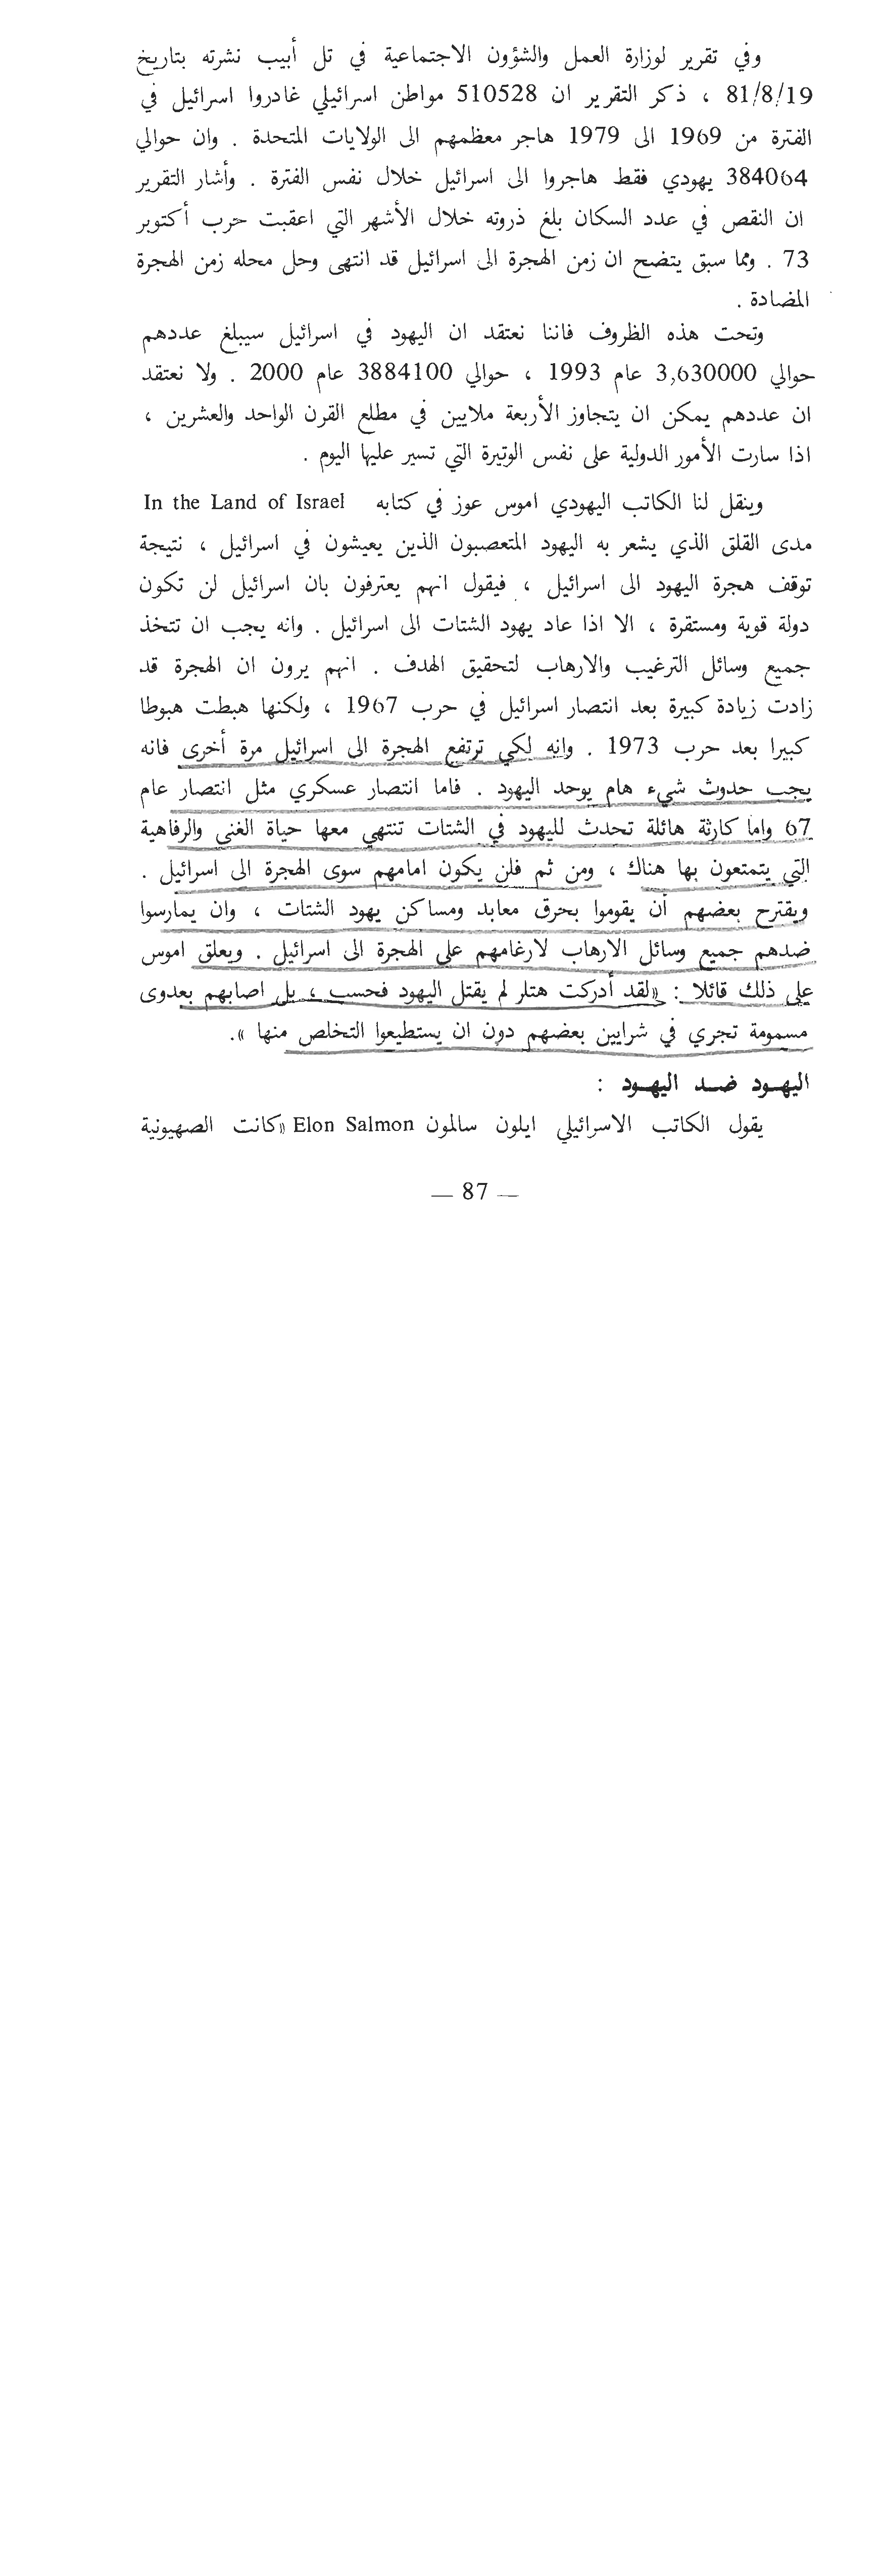 وفي تقرير لوزارة العمل والشؤون الاجتماعية في تل أبيب نشرته بتاريخ
81/8/19 ، ذكر التقرير ان 510528 مواطن اسرائيلي غادروا اسرائيل في
الفترة من 1969 الى 1979 هاجر معظمهم الى الولايات المتحدة . وان حوالي
384064 يهودي فقط هاجروا الى اسرائيل خلال نفس الفترة . وأشار التقرير
ان النقص في عدد السكان بلغ ذروته خلال الأشهر التي اعقبت حرب أكتوبر
73 . ومما سبق يتضح ان زمن الهجرة الى اسرائيل قد انتهى وحل محله زمن الهجرة
المضادة .
وتحت هذه الظروف فاننا نعتقد ان اليهود في اسرائيل سيبلغ عددهم
حوالي 3,630000 عام 1993 ، حوالي 3884100 عام 2000 . ولا نعتقد
ان عددهم يمكن ان يتجاوز الأربعة ملايين في مطلع القرن الواحد والعشرين ،
اذا سارت الأمور الدولية على نفس الوتيرة التي تسير عليها اليوم .
وينقل لنا الكاتب اليهودي اموس عوز في كتابه In the Land of Israel
مدى القلق الذي يشعر به اليهود المتعصبون الذين يعيشون في اسرائيل ، نتيجة
توقف هجرة اليهود الى اسرائيل ، فيقول انهم يعترفون بان اسرائيل لن تكون
دولة قوية ومستقرة ، الا اذا عاد يهود الشتات الى اسرائيل . وانه يجب ان تتخذ
جميع وسائل الترغيب والارهاب لتحقيق الهدف . انهم يرون ان الهجرة قد
زادت زيادة كبيرة بعد انتصار اسرائيل في حرب 1967 ، ولكنها هبطت هبوطا
كبيرا بعد حرب 1973 . وانه لكي ترتفع الهجرة الى اسرائيل مرة أخرى فانه
يجب حدوث شيء هام يوحد اليهود . فاما انتصار عسكري مثل انتصار عام
67 واما كارثة هائلة تحدث لليهود في الشتات تنتهي معها حياة الغنى والرفاهية
التي يتمتعون بها هناك ، ومن ثم فلن يكون امامهم سوى الهجرة الى اسرائيل .
ويقترح بعضهم أن يقوموا بحرق معابد ومساكن يهود الشتات ، وان يمارسوا
ضدهم جميع وسائل الارهاب لارغامهم على الهجرة الى اسرائيل . ويعلق اموس
على ذلك قائلا : «لقد أدركت هتلر لم يقتل اليهود فحسب ، بل اصابهم بعدوى
مسمومة تجري في شرايين بعضهم دون ان يستطيعوا التخلص منها ».
اليهـود ضـد اليهـود :
يقول الكاتب الاسرائيلي ايلون سالمون Elon Salmon «كانت الصهيونية
— 87 —